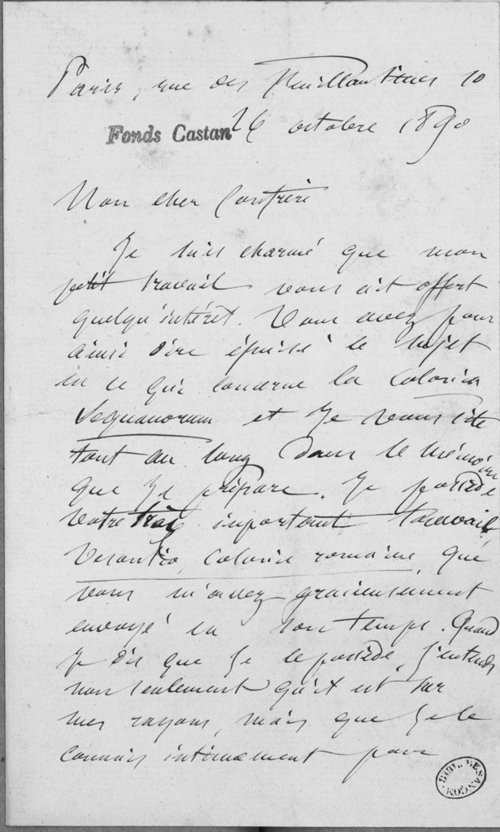 Paris, rue des Feuillantines 10
Fonds Castan
26 octobre 1890
Mon cher Confrère
Je suis charmé que mon
petit travail vous ait offert
quelqu'intérêt. Vous avez pour
ainsi dire épuisé le sujet
en ce qui concerne la Colonia
Sequanorum et je vous cite
tout au long dans le mémoire
que je prépare. Je possède
votre très important travail,
Vesontio, Colonie romaine, que
vous m'avez gracieusement
envoyé en son temps. Quand
je dis que je le possède, j'entends
non seulement qu'il est sur
mes rayons, mais que je le
connais intimement pour
BIBL. BESANÇON